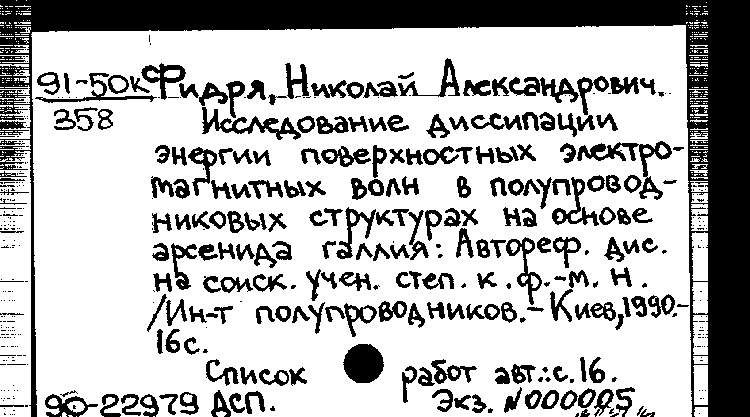 91-50к Фидря, Николай Александрович.
358 Исследование диссипации
энергии поверхностных электро-
магнитных волн в полупровод-
никовых структурах на основе
арсенида галлия: Автореф. дис.
на соиск. учен. степ. к.ф.-м.н.
/Ин-т полупроводников.-Киев,1990.-
16с.
Список работ авт.:с.16.
90-22979 ДСП. Экз. N000005